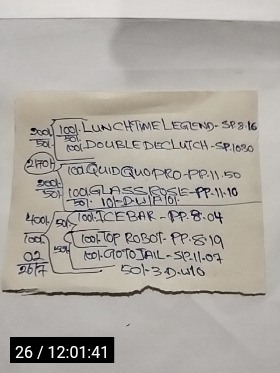 200/- 100/- LUNCHTIME LEGEND - SP.8.16
50/- 50/-
100/- DOUBLE DECLUTCH - SP.1030
2170/-
100/- QUID QUO PRO - PP.11.50
200/-
50/- 100/- GLASS ROSIE - PP.11.10
50/- 10/- DW/A
400/- 50/- 100/- ICE BAR - PP.8.04
100/- 100/- TOP ROBOT - PP.8.19
02 50/- 100/- GOTO JAIL - SP.11.07
2617 50/- 3.D.W10
26 / 12:01:41